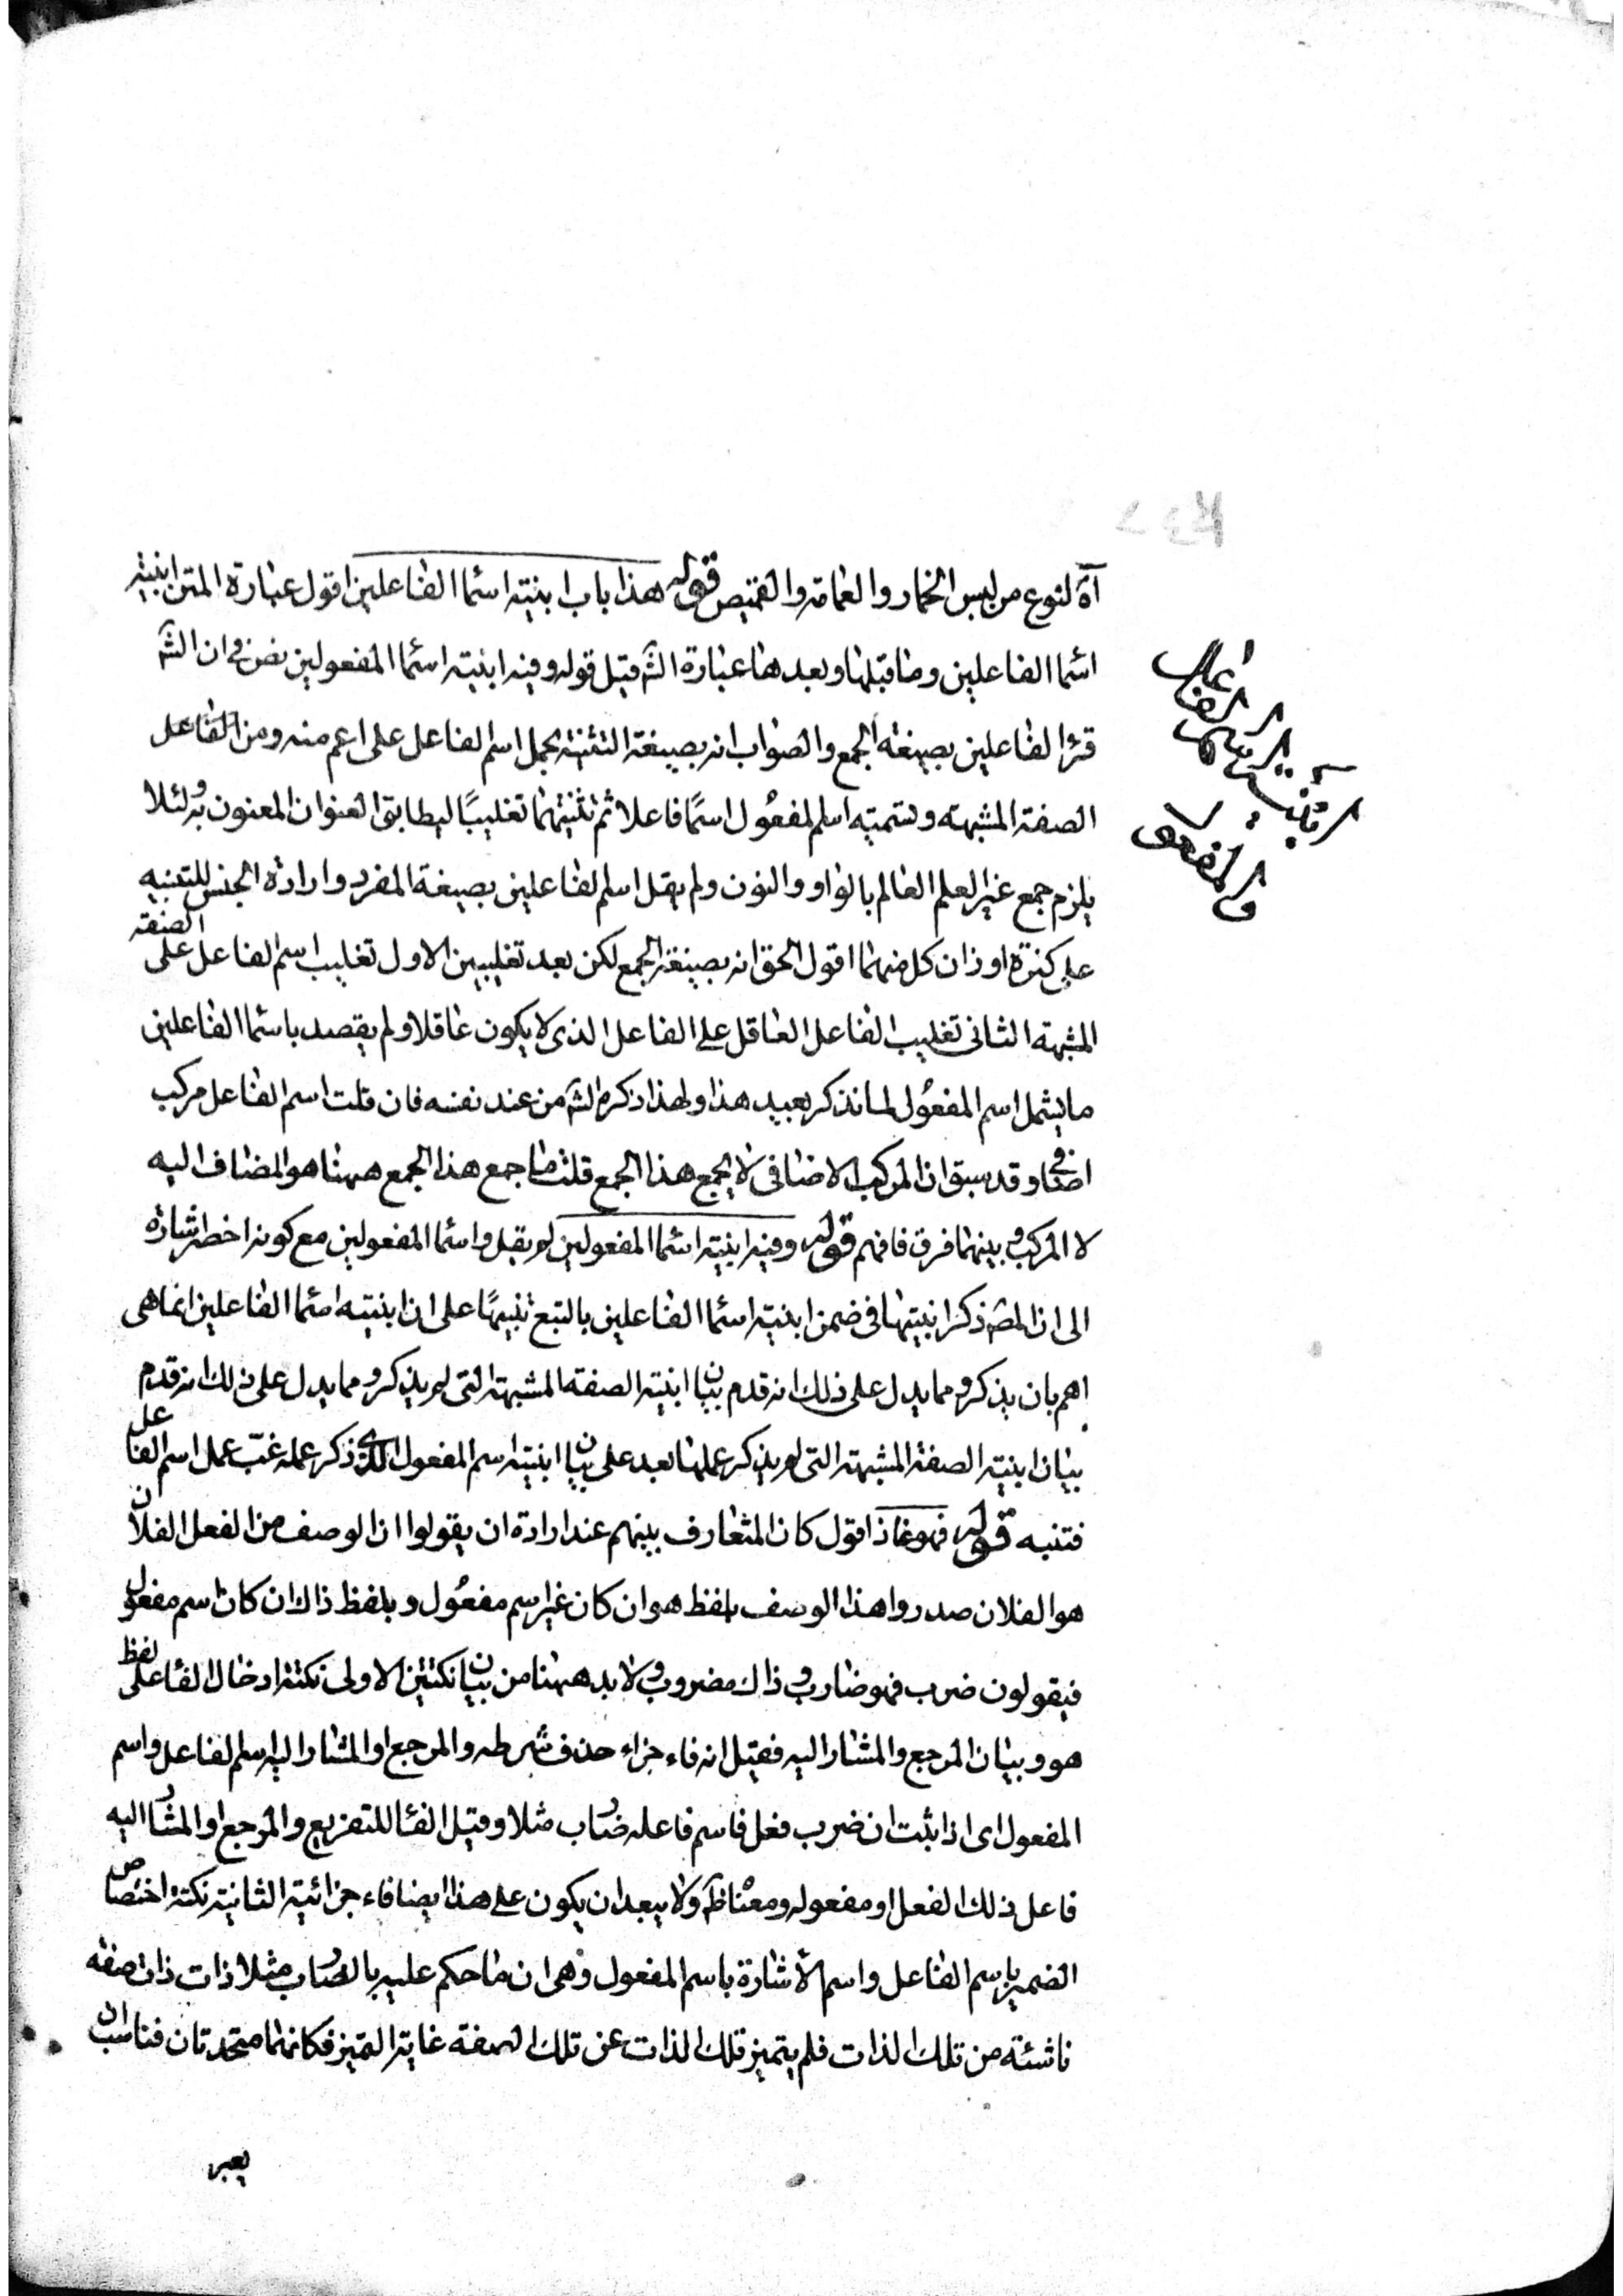 آة لنوع من لبس الخمار والعمامة والقميص قوله هذا باب ابنية اسماء الفاعلين اقول عبارة المتن ابنية
اسماء الفاعلين وما قبلها وبعدها عبارة الش قيل قوله وفيه ابنية اسماء المفعولين نص في ان الش
قرا الفاعلين بصيغة الجمع والصواب انه بصيغة التثنية بحمل اسم الفاعل على اعم منه ومن الفاعل
الصفة المشبهة وتسميته اسم المفعول اسمًا فاعلا ثم تثنيتهما تغليبًا ليطابق العنوان المعنون به ولئلا
يلزم جمع غير العلم العالم بالواو والنون ولم يقل اسم الفاعلين بصيغة المفرد وارادة الجنس للتنبيه
على كثرة اوزان كل منهما اقول الحق انه بصيغة الجمع لكن بعد تغليبين الاول تغليب اسم الفاعل على الصفة
المشبهة الثانى تغليب الفاعل العاقل على الفاعل الذى لا يكون عاقلا ولم يقصد باسماء الفاعلين
ما يشمل اسم المفعول لما نذكر بعيد هذا ولهذا ذكره الش من عند نفسه فان قلت اسم الفاعل مركب
اضافى وقد سبق ان المركب الاضافى لا يجمع هذا الجمع قلت ما جمع هذا الجمع ههنا هو المضاف اليه
لا المركب وبينهما فرق فافهم قوله وفيه ابنية اسماء المفعولين لم يقل واسماء المفعولين مع كونه اخصر اشارة
الى ان المص ذكر ابنيتها فى ضمن ابنية اسماء الفاعلين بالتبع تنبيهًا على ان ابنية اسماء الفاعلين انما هى
اهم بان يذكر ومما يدل على ذلك انه قدم بيان ابنية الصفة المشبهة التى لم يذكر ومما يدل على ذلك انه قدم
بيان ابنية الصفة المشبهة التى لم يذكر عملها بعد على بيان ابنية اسم المفعول الذى ذكر عمله غبّ عمل اسم الفاعل
فتنبه قوله فهو غاذ اقول كان المتعارف بينهم عند ارادة ان يقولوا ان الوصف من الفعل الفلان
هو الفلان صدروا هذا الوصف بلفظ هو ان كان غير اسم مفعول وبلفظ ذاك ان كان اسم مفعول
فيقولون ضرب فهو ضارب وذاك مضروب ولا بد ههنا من بيان نكتتين الاولى نكتة ادخال الفاء على لفظ
هو وبيان المرجع والمشار اليه فقيل انه فاء جزاء حذف شرطه والمرجع او المشار اليه اسم الفاعل واسم
المفعول اى اذا ثبت ان ضرب فعل فاسم فاعله ضارب مثلا وقيل الفاء للتفريع والمرجع او المشار اليه
فاعل ذلك الفعل او مفعوله ومعناه ظ ولا يبعد ان يكون على هذا ايضا فاء جزائية الثانية نكتة اختصاص
الضمير باسم الفاعل واسم الاشارة باسم المفعول وهى ان ما حكم عليه بالضارب مثلا ذات ذات صفة
ناشئة من تلك الذات فلم يتميز تلك الذات عن تلك الصفة غاية التميز فكانهما متحدتان فناسب ان
يعبر